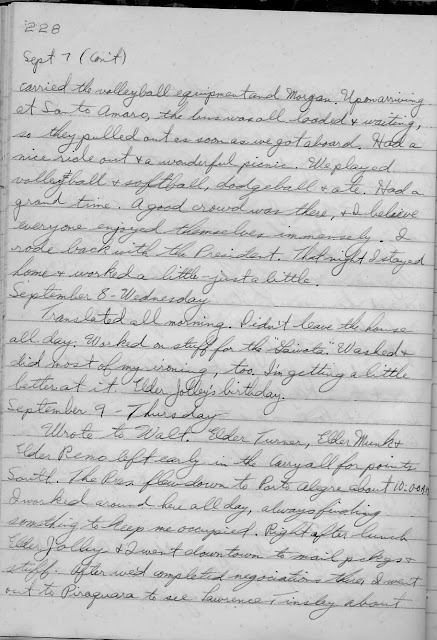 228
Sept 7 (Con't)
carried the volleyball equipment and Morgan. Upon arriving
at Santo Amaro, the bus was all loaded & waiting,
so they pulled out as soon as we got aboard. Had a
nice ride out & a wonderful picnic. We played
volleyball & softball, dodgeball & ate. Had a
grand time. A good crowd was there, & I believe
everyone enjoyed themselves immensely. I
rode back with the President. That night I stayed
home & worked a little - just a little.
September 8 - Wednesday
Translated all morning. Didn't leave the house
all day. Worked on stuff for the "Gaivota". Washed &
did most of my ironing, too. I'm getting a little
better at it. Elder Jolley's birthday.
September 9 - Thursday
Wrote to Walt. Elder Turner, Elder Munk &
Elder Reno left early in the Carryall for points
South. The Pres flew down to Porto Alegre about 10:00 AM
I worked around here all day, always finding
something to keep me occupied. Right after lunch
Elder Jolley & I went downtown to mail pckgs &
stuff. After we'd completed negociations there I went
out to Piraquara to see Lawrence Tinsley about